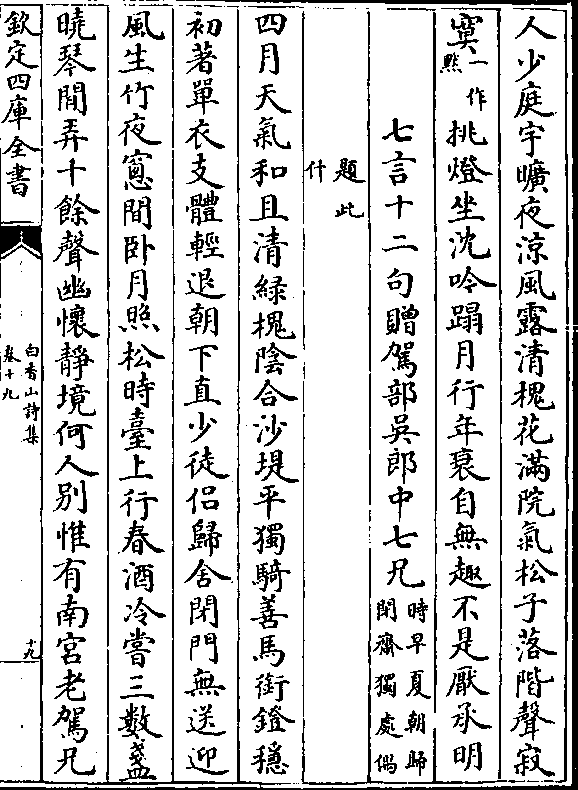 人少庭宇曠夜涼風露清槐花滿院氣松子落階聲寂
寞一作㸃挑燈坐沈吟蹋月行年衰自無趣不是厭承明
七言十二句贈駕部吳郎中七兄時早夏朝歸閉齋獨處偶
題此什
四月天氣和且清緑槐隂合沙堤平獨騎善馬銜鐙穩
初著單衣支體輕退朝下直少徒侣歸舍閉門無送迎
風生竹夜窻間卧月照松時臺上行春酒冷嘗三數盞
曉琴閒弄十餘聲幽懷靜境何人别惟有南宫老駕兄
欽定四庫全書
白香山詩集
卷十九
十九